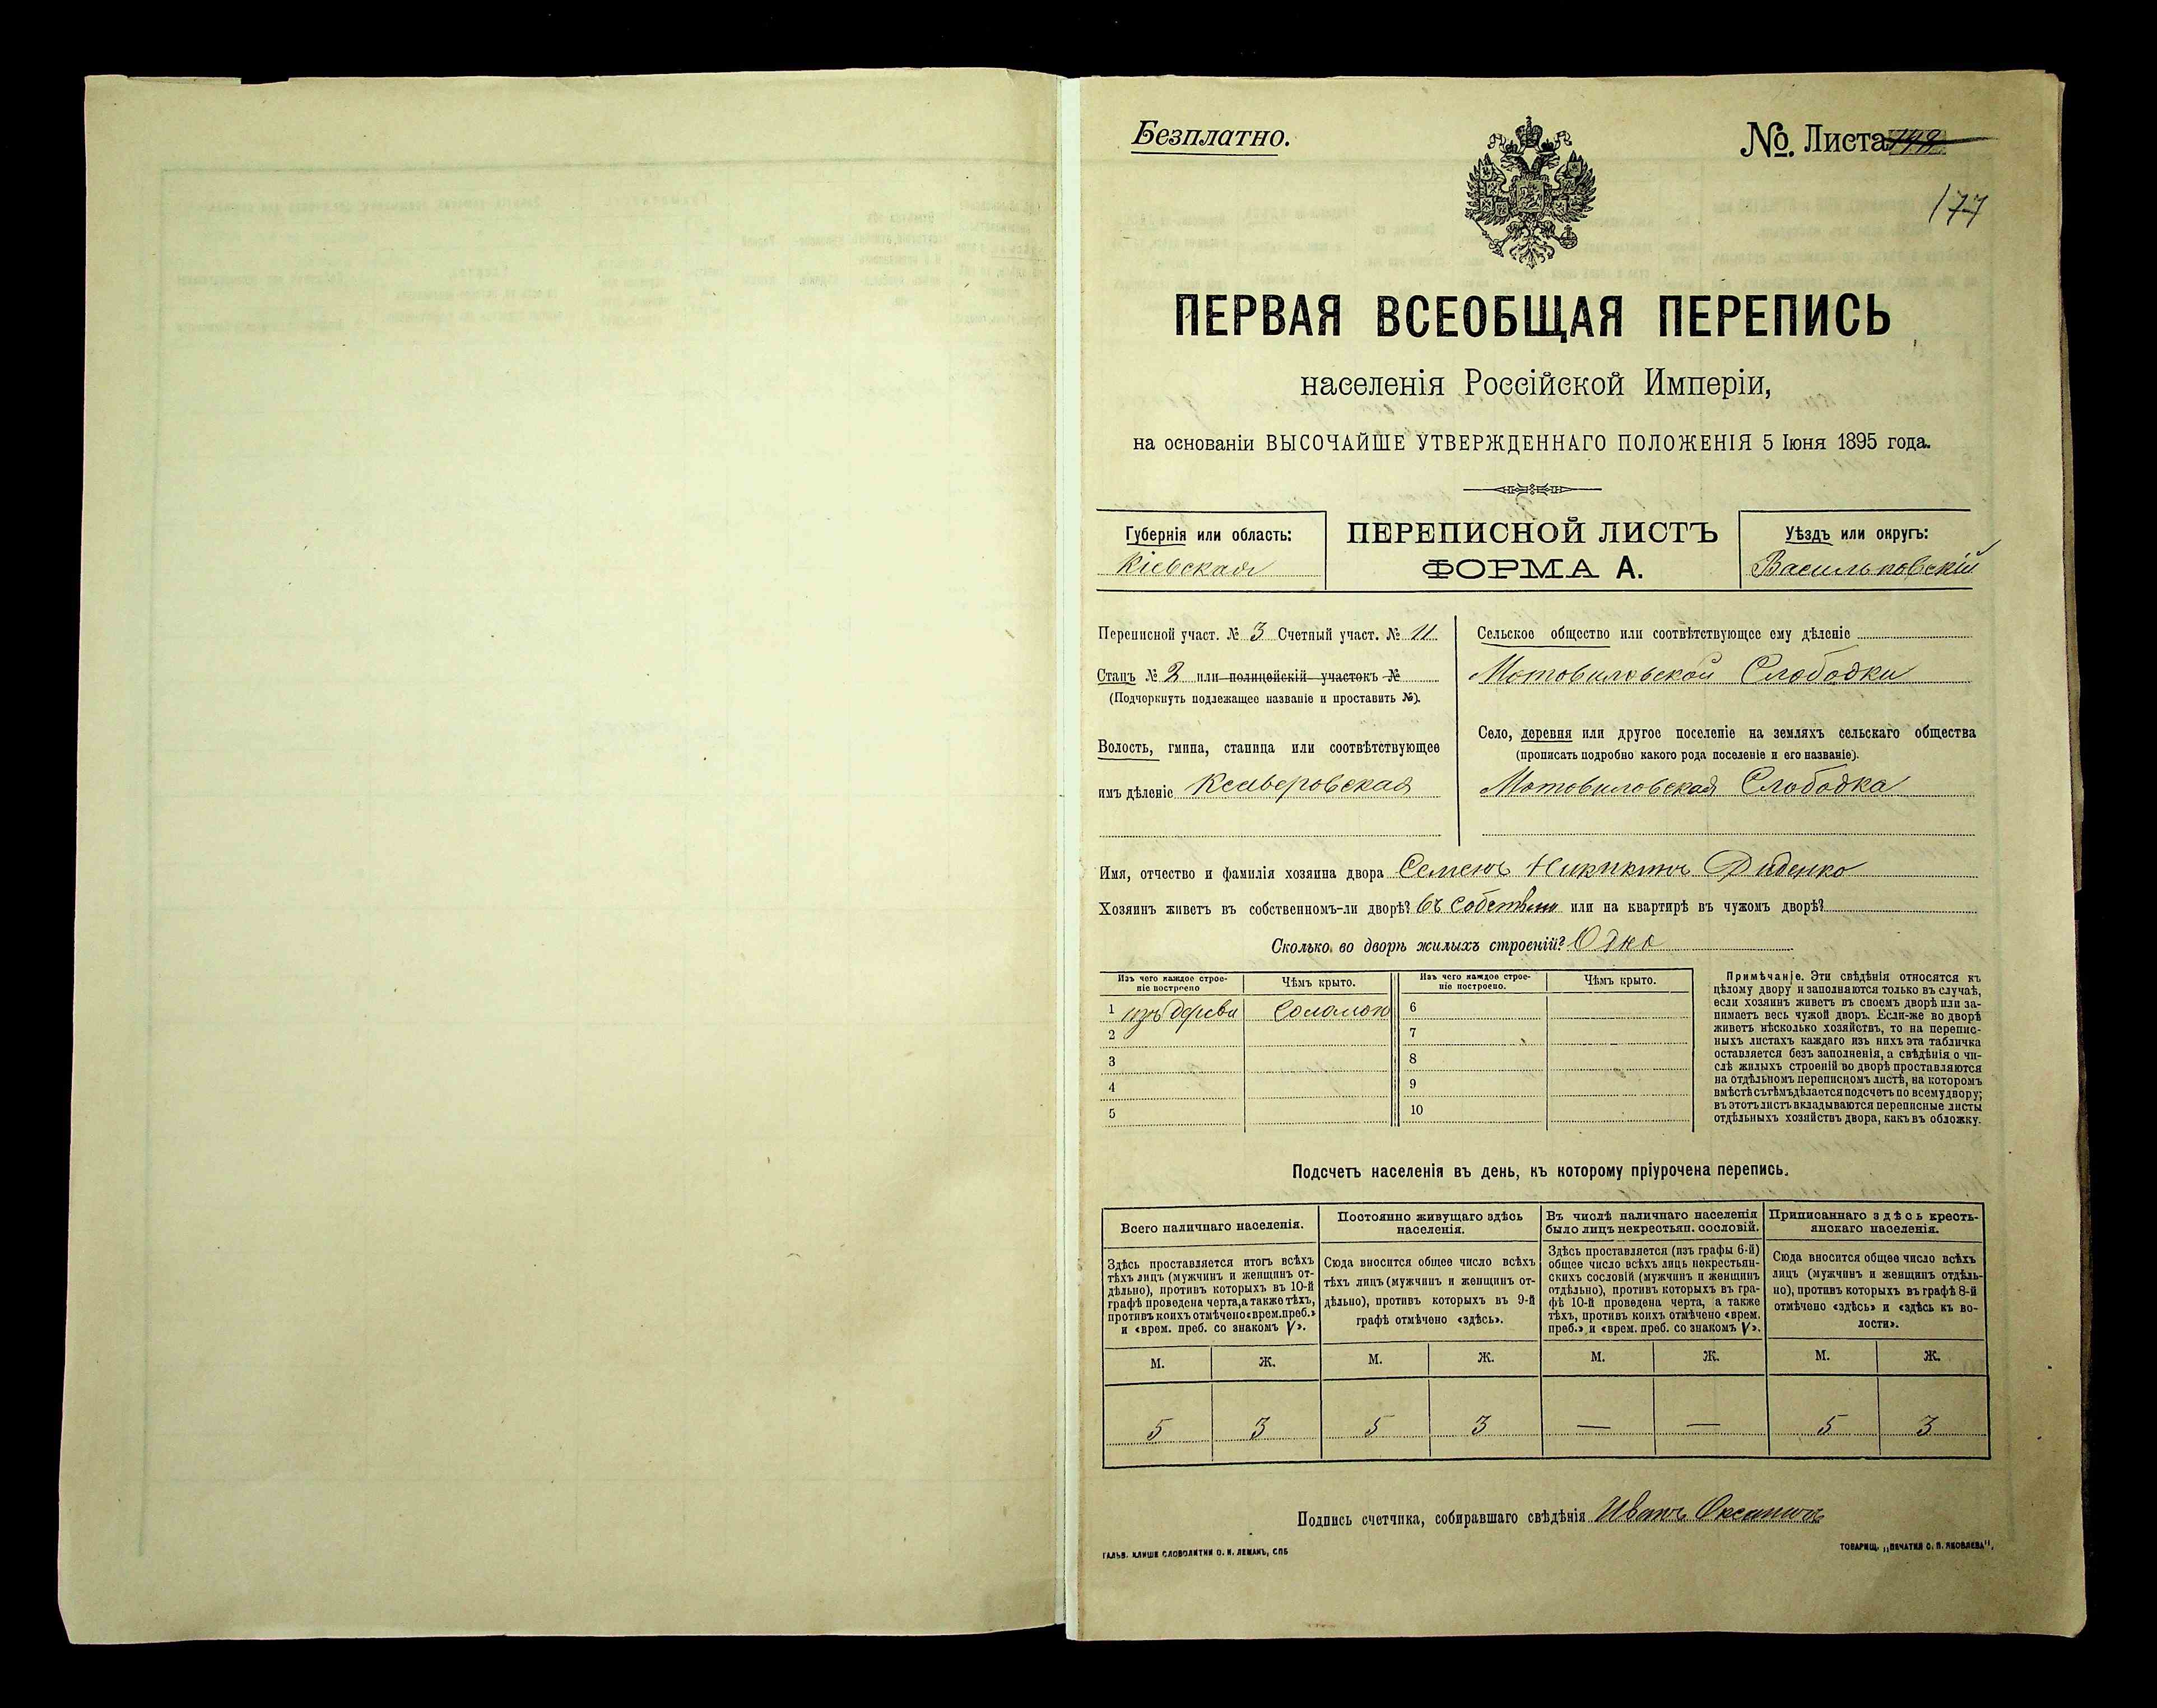 Безплатно.
№. Листа 177
ПЕРВАЯ ВСЕОБЩАЯ ПЕРЕПИСЬ
населенія Россійской Имперіи,
на основаніи ВЫСОЧАЙШЕ УТВЕРЖДЕННАГО ПОЛОЖЕНІЯ 5 Іюня 1895 года.
Губернія или область:
Кіевская
ПЕРЕПИСНОЙ ЛИСТЪ
ФОРМА А.
Уѣздъ или округъ:
Васильковскій
Переписной участ. № 3 Счетный участ. № 11
Станъ № 2 или полицейскій участокъ №
(Подчеркнуть подлежащее названіе и проставить №).
Волость, гмина, станица или соотвѣтствующее
имъ дѣленіе Ксаверовская
Сельское общество или соотвѣтствующее ему дѣленіе
Мотовиловской Слободки
Село, деревня или другое поселеніе на земляхъ сельскаго общества
(прописать подробно какого рода поселеніе и его названіе).
Мотовиловская Слободка
Имя, отчество и фамилія хозяина двора Семенъ Никитинъ Диденко
Хозяинъ живетъ въ собственномъ-ли дворѣ? въ собствен или на квартирѣ въ чужомъ дворѣ?
Сколько во дворѣ жилыхъ строеній? Одно
Изъ чего каждое строе-
ніе построено
Чѣмъ крыто.
Изъ чего каждое строе-
ніе построено.
Чѣмъ крыто.
1 изъ дерева Соломой 6
2 7
3 8
4 9
5 10
Примѣчаніе. Эти свѣдѣнія относятся къ
цѣлому двору и заполняются только въ случаѣ,
если хозяинъ живетъ въ своемъ дворѣ или за-
нимаетъ весь чужой дворъ. Если-же во дворѣ
живетъ нѣсколько хозяйствъ, то на перепис-
ныхъ листахъ каждаго изъ нихъ эта табличка
оставляется безъ заполненія, а свѣдѣнія о чи-
слѣ жилыхъ строеній во дворѣ проставляются
на отдѣльномъ переписномъ листѣ, на которомъ
вмѣстѣ съ тѣмъ дѣлается подсчетъ по всему двору;
въ этотъ листъ вкладываются переписные листы
отдѣльныхъ хозяйствъ двора, какъ въ обложку.
Подсчетъ населенія въ день, къ которому пріурочена перепись.
Всего наличнаго населенія.
Здѣсь проставляется итогъ всѣхъ
тѣхъ лицъ (мужчинъ и женщинъ от-
дѣльно), противъ которыхъ въ 10-й
графѣ проведена черта, а также тѣхъ,
противъ коихъ отмѣчено «врем. преб.»
и «врем. преб. со знакомъ V».
Постоянно живущаго здѣсь
населенія.
Сюда вносится общее число всѣхъ
тѣхъ лицъ (мужчинъ и женщинъ от-
дѣльно), противъ которыхъ въ 9-й
графѣ отмѣчено «здѣсь».
Въ числѣ наличнаго населенія
было лицъ некрестьян. сословій.
Здѣсь проставляется (изъ графы 6-й)
общее число всѣхъ лицъ некрестьян-
скихъ сословій (мужчинъ и женщинъ
отдѣльно), противъ которыхъ въ гра-
фѣ 10-й проведена черта, а также
тѣхъ, противъ коихъ отмѣчено «врем.
преб.» и «врем. преб. со знакомъ V».
Приписаннаго здѣсь кресть-
янскаго населенія.
Сюда вносится общее число всѣхъ
лицъ (мужчинъ и женщинъ отдѣль-
но), противъ которыхъ въ графѣ 8-й
отмѣчено «здѣсь» и «здѣсь къ во-
лости».
М. Ж. М. Ж. М. Ж. М. Ж.
5 3 5 3 — — 5 3
Подпись счетчика, собиравшаго свѣдѣнія Иванъ
ГАЛЬВ. КЛИШЕ СЛОВОЛИТНИ О. И. ЛЕМАНЪ, СПБ
ТОВАРИЩ. „ПЕЧАТНЯ С. П. ЯКОВЛЕВА".